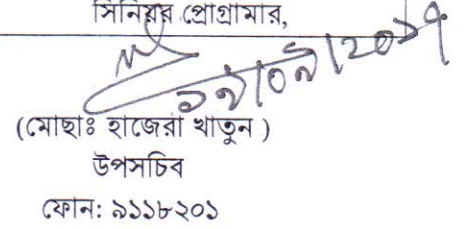 সিনিয়র প্রোগ্রামার,
(মোছাঃ হাজেরা খাতুন )
উপসচিব
ফোন: ৯১১৮২০১